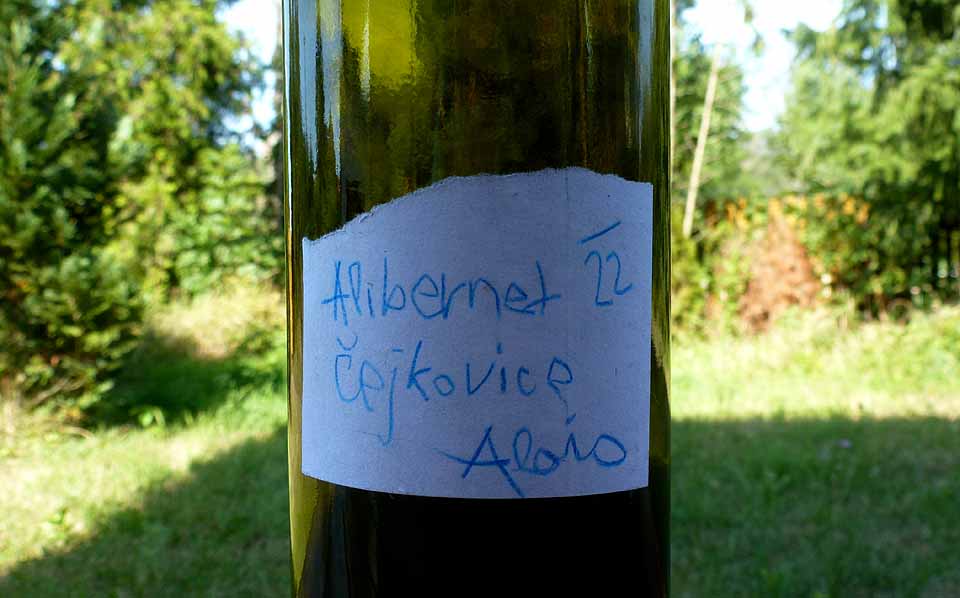 Alibernet 22
Čejkovice
Alois